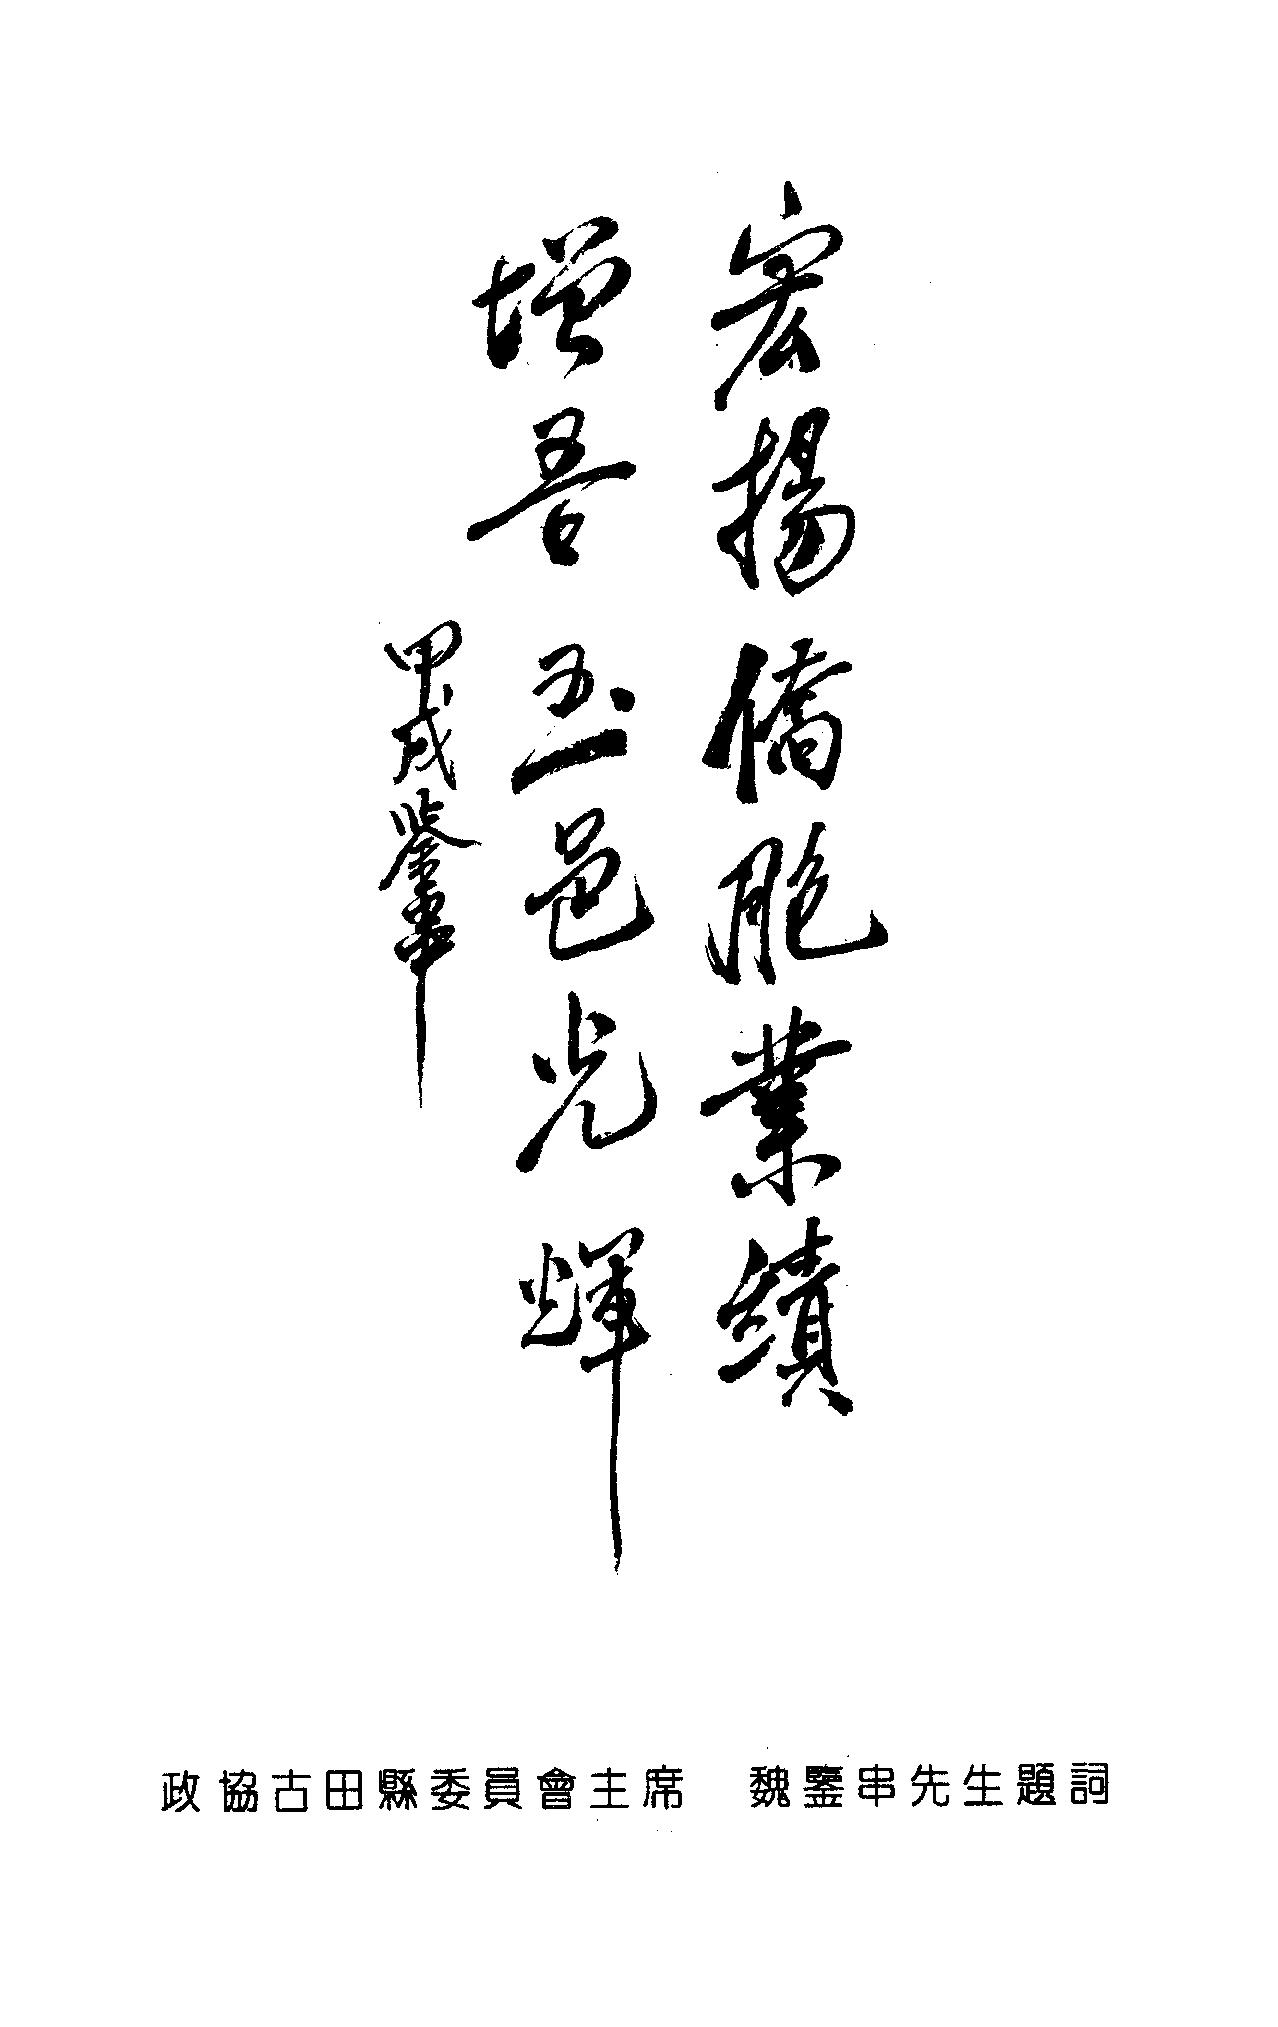 宏揚僑胞業績
增吾玉邑光輝
甲戌鑒串
政協古田縣委員會主席 魏鑒串先生題詞